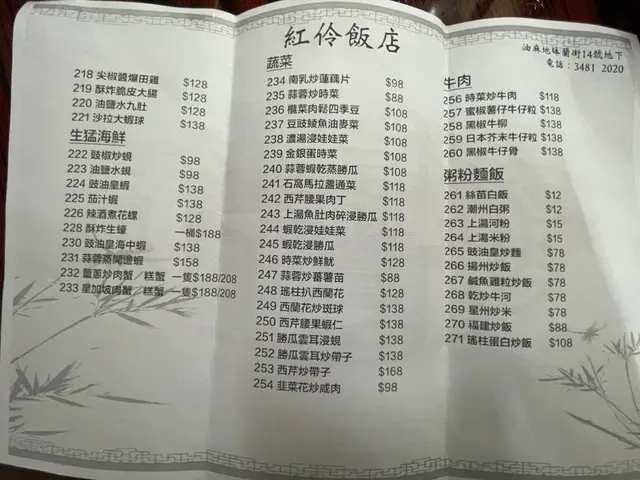 紅伶飯店
油麻地砵蘭街14號地下
電話：3481 2020
218 尖椒醬爆田雞 $128
219 酥炸脆皮大腸 $128
220 油鹽水九肚 $128
221 沙拉大蝦球 $138
生猛海鮮
222 豉椒炒蜆 $98
223 油鹽水蜆 $98
224 豉油皇蝦 $138
225 茄汁蝦 $138
226 辣酒煮花螺 $128
228 酥炸生蠔 一桶$188
230 豉油皇海中蝦 $138
231 蒜蓉蒸開邊蝦 $158
232 薑蔥炒肉蟹／糕蟹 一隻$188/208
233 星加坡肉蟹／糕蟹 一隻$188/208
蔬菜
234 南乳炒蓮藕片 $98
235 蒜蓉炒時菜 $88
236 欖菜肉鬆四季豆 $108
237 豆豉鯪魚油麥菜 $108
238 濃湯浸娃娃菜 $108
239 金銀蛋時菜 $108
240 蒜蓉蝦乾蒸勝瓜 $118
241 石窩馬拉盞通菜 $118
242 西芹腰果肉丁 $118
243 上湯魚肚肉碎浸勝瓜 $118
244 蝦乾浸娃娃菜 $118
245 蝦乾浸勝瓜 $118
246 時菜炒鮮魷 $128
247 蒜蓉炒蕃薯苗 $88
248 瑤柱扒西蘭花 $128
249 西蘭花炒斑球 $138
250 西芹腰果蝦仁 $138
251 勝瓜雲耳浸蜆 $138
252 勝瓜雲耳炒帶子 $138
253 西芹炒帶子 $168
254 韭菜花炒咸肉 $98
牛肉
256 時菜炒牛肉 $118
257 蜜椒薯仔牛仔粒 $138
258 黑椒牛柳 $138
259 日本芥末牛仔粒 $138
260 黑椒牛仔骨 $138
粥粉麵飯
261 絲苗白飯 $12
262 潮州白粥 $12
263 上湯河粉 $15
264 上湯米粉 $15
265 豉油皇炒麵 $78
266 揚州炒飯 $78
267 鹹魚雞粒炒飯 $78
268 乾炒牛河 $78
269 星州炒米 $78
270 福建炒飯 $88
271 瑤柱蛋白炒飯 $108